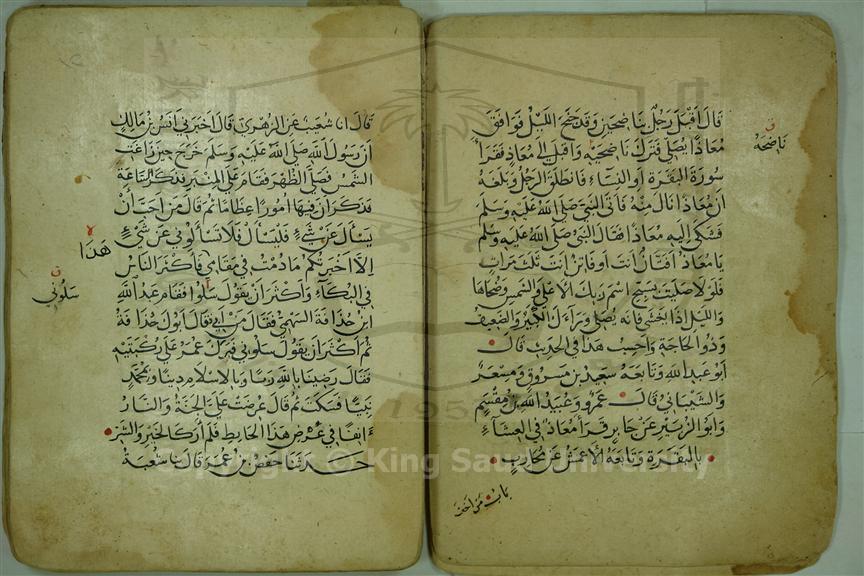 قال أقبل رجل بناضحين وقد جنح الليل فوافق
معاذا يصلي فترك ناضحيه واقبل إلى معاذ فقرأ
سورة البقرة أو النساء فانطلق الرجل وبلغه
ان معاذا نال منه فأتى النبي صلى الله عليه وسلم
فشكى إليه معاذا فقال النبي صلى الله عليه وسلم
يا معاذ أفتان أنت أو فاتن أنت ثلث مرات
فلولا صليت بسبح اسم ربك الأعلى والشمس وضحاها
والليل اذا يغشى فإنه يصلي وراءك الكبير والضعيف
وذو الحاجة واحسب هذا في الحديث قال
ابو عبد الله وتابعه سعيد بن مسروق ومسعر
والشيباني قال عمرو وعبيد الله بن مقسم
وابو الزبير عن جابر قرأ معاذ في العشاء
بالبقرة وتابعه الأعمش عن محارب
ناضحه
باب من اخف
قال انا شعيب عن الزهري قال اخبرني انس بن مالك
ان رسول الله صلى الله عليه وسلم خرج حين زاغت
الشمس فصلى الظهر فقام على المنبر فذكر الساعة
فذكر ان فيها امورا عظاما ثم قال من احب أن
يسأل عن شيء فليسأل فلا تسألوني عن شيء
الا أخبرتكم ما دمت في مقامي فأكثر الناس
في البكاء وأكثر أن يقول سلوا فقام عبد الله
ابن حذافة السهمي فقال من أبي قال ابوك حذافة
ثم أكثر أن يقول سلوني فبرك عمر على ركبتيه
فقال رضينا بالله ربا وبالاسلام دينا وبمحمد
نبيا فسكت ثم قال عرضت علي الجنة والنار
انفا في عرض هذا الحايط فلم أر كالخير والشر
حدثنا حفص بن عمر قال نا شعبة
هذا
سلوني
1957
Copyright © King Saud University